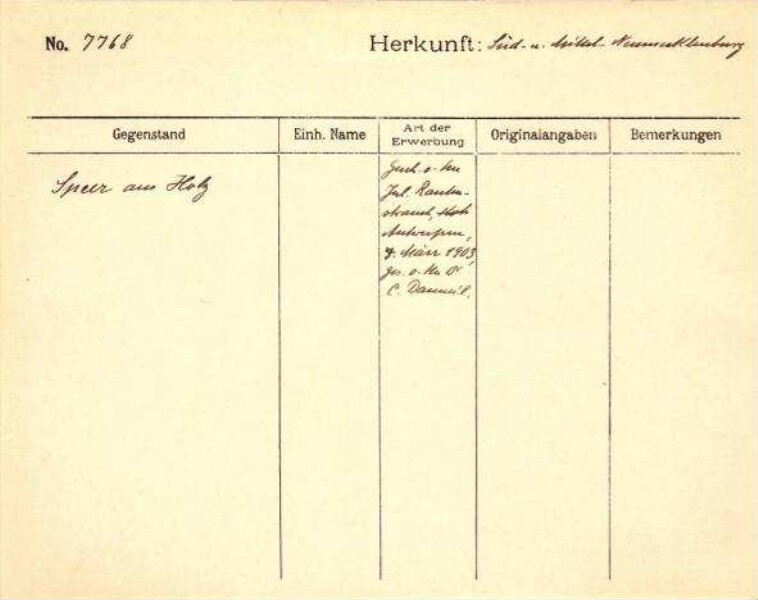 No. 7768 Herkunft: Süd- u. Mittel-Neumecklenburg
Gegenstand Einh. Name Art der Erwerbung Originalangaben Bemerkungen
Speer aus Holz
Gesch. v. Hn
Jul. Rauten-
strauch,
Antwerpen,
März 1903,
ges. v. Hn Dr
C. Danneil.